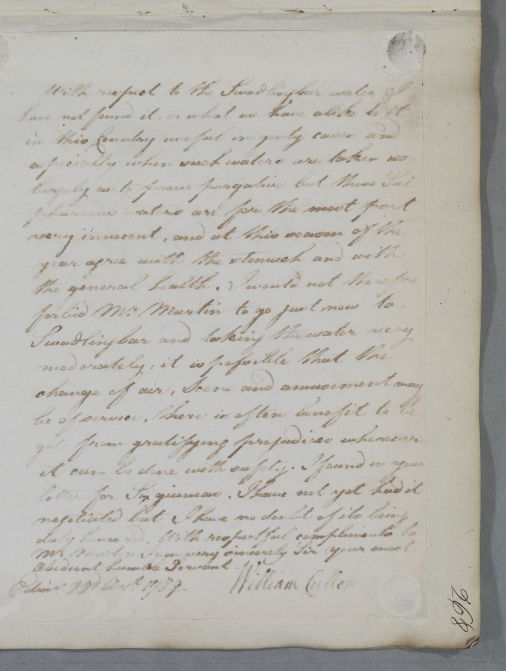 With respect to the Swadlingbar water I
have not found it, or what we have alike to it
in this Country useful in gouty cases and
especially when such waters are taken so
largely as to prove purgative, but these Sul
phureous waters are for the most part
very innocent, and at this season of the
year agree with the stomach and with
the general health. I would not therefore
forbid Mr. Martin to go just now to
Swadlingbar and taking the water very
moderately, it is possible that the
change of air, Scene and amusement may
be of service. There is often benefit to be
got from gratifying prejudices wherever
it can be done with safety. I found in your
letter for Six guineas. I have not yet had it
negotiated but I have no doubt of its being
duly honored. With respectful compliments to
Mr. Martin I am very sincerely Sir your most
Obedient humble Servant
Edinr 1789. William Cullen
268